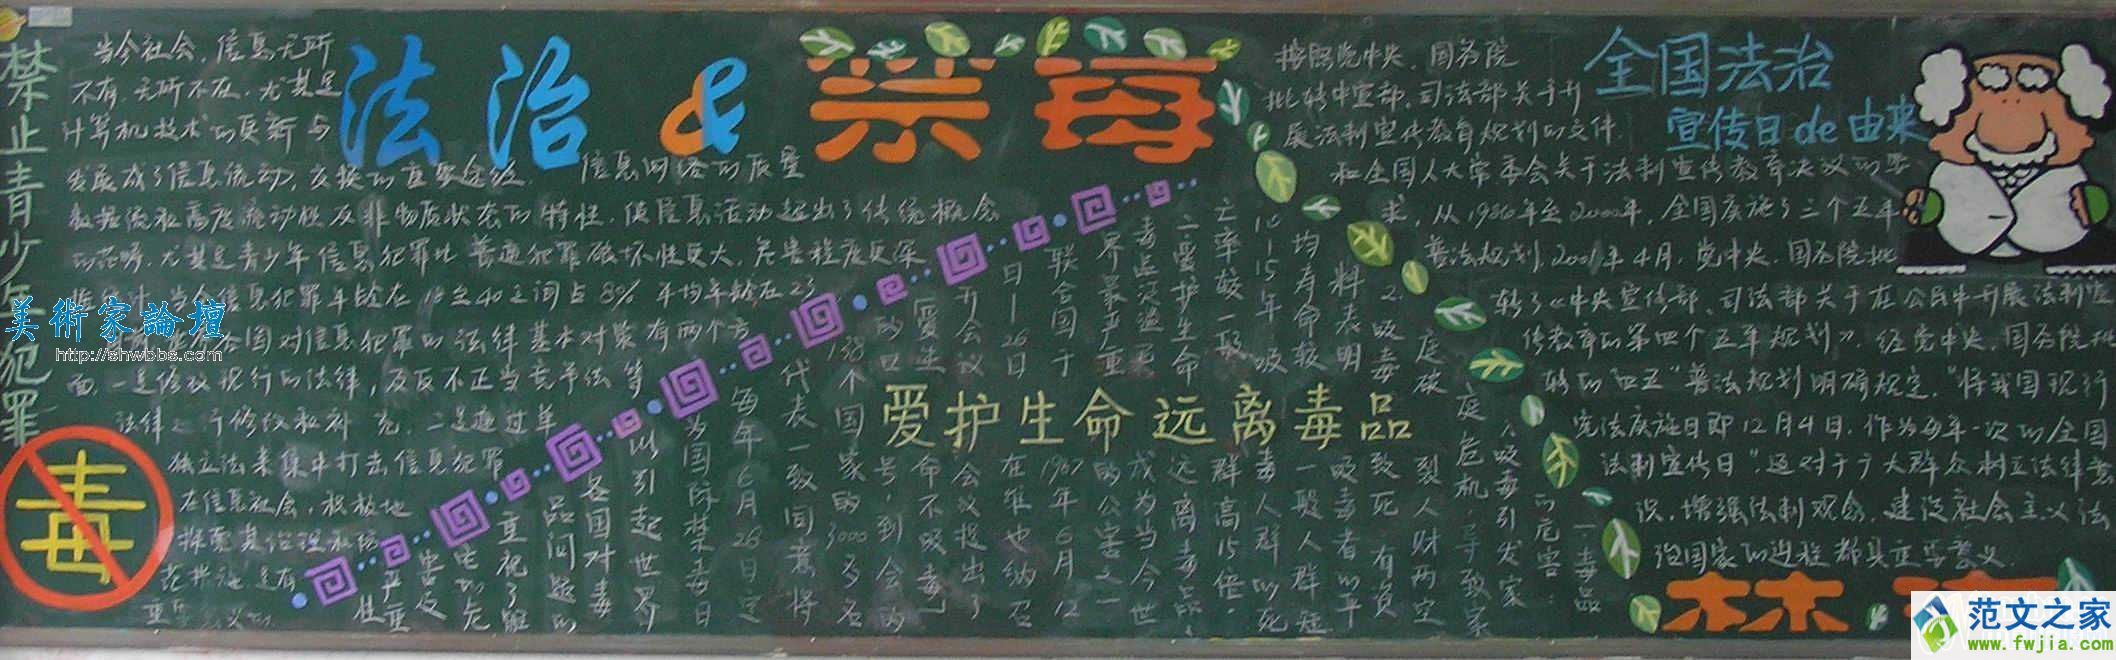 禁止青少年犯罪
当今社会，信息无所
不有，无所不在，尤其是
计算机技术的更新与
发展成了信息流动，交换的重要途径．信息网络的质量
法治&禁毒
数据流和高度流动性及非物质状态的特性，使信息活动超出了传统概念
的范畴，尤其是青少年信息犯罪比普通犯罪破坏性更大，危害程度更深
信息犯罪年龄在18至40之间占80% 平均年龄在23
国对信息犯罪的法律基本对策有两个方
面，一是修改现行的法律，及反不正当竞争法等
法律
修改和补充，二是通过单
独立法来集中打击信息犯罪
在信息社会，积极地
毒
美術家論壇
http://shwbbs.com
爱护生命远离毒品
一毒品
的危害：
人吸毒引发家
庭危机，导致家
庭破裂人财两空
2.吸毒致死，有资
料表明吸毒者的平
均寿命较一般人群短
10-15年，吸毒人群的死
亡率较一般群高15倍．
二爱护生命远离毒品．
毒品泛滥已成为当今世
界最严重的公害之一
联合国于1987年6月12
日-26日在维也纳召
开会议会议提出了
"爱生命不吸毒"
的口号，到会的
138个国家的3000多名
代表一致同意将
每年6月26日定
为国际禁毒日
以引起世界
各国对毒
品问题的
重视
全国法治
宣传日de由来
按照党中央、国务院
批转中宣部、司法部关于开
展法制宣传教育规划的文件．
和全国人大常委会关于法制宣传教育决议的要
求，从1986年至2000年，全国实施了三个五年
普法规划，2001年4月，党中央、国务院批
转了《中央宣传部、司法部关于在公民中开展法制宣
传教育的第四个五年规划》．经党中央、国务院批
转的"四五"普法规划明确规定，"将我国现行
宪法实施日即12月4日，作为每年一次的全国
法制宣传日"．这对于广大群众树立法律意
识，增强法制观念，建设社会主义法
治国家的进程都具重要意义．
范文之家
www.fwjia.com